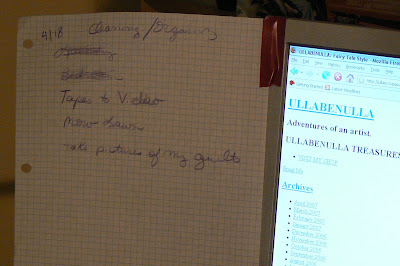 4/18 Cleaning/Organizing
Tapes to Video
Mow Lawn
Take pictures of my quilts
ULLABENULLA: Fairy Tale Style - Mozilla Firefox
File Edit View History Bookmarks Tools Help
Getting Started Latest Headlines
ULLABENULLA
Adventures of an artist.
ULLABENULLA TREASURES
VISIT MY SHOP
Archives
April 2007
March 2007
February 2007
January 2007
December 2006
November 2006
October 2006
September 2006
August 2006